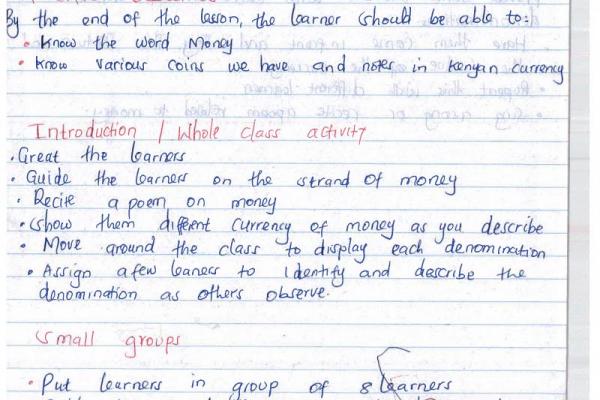 By the end of the lesson, the learner should be able to:
• Know the word Money
• Know various coins we have and notes in Kenyan currency
Introduction / Whole class activity
• Great the learners
• Guide the learners on the strand of money
• Recite a poem on money
• Show them different currency of money as you describe
• Move around the class to display each denomination
• Assign a few leaners to identify and describe the
denomination as others observe.
Small groups
• Put learners in group of 8 learners